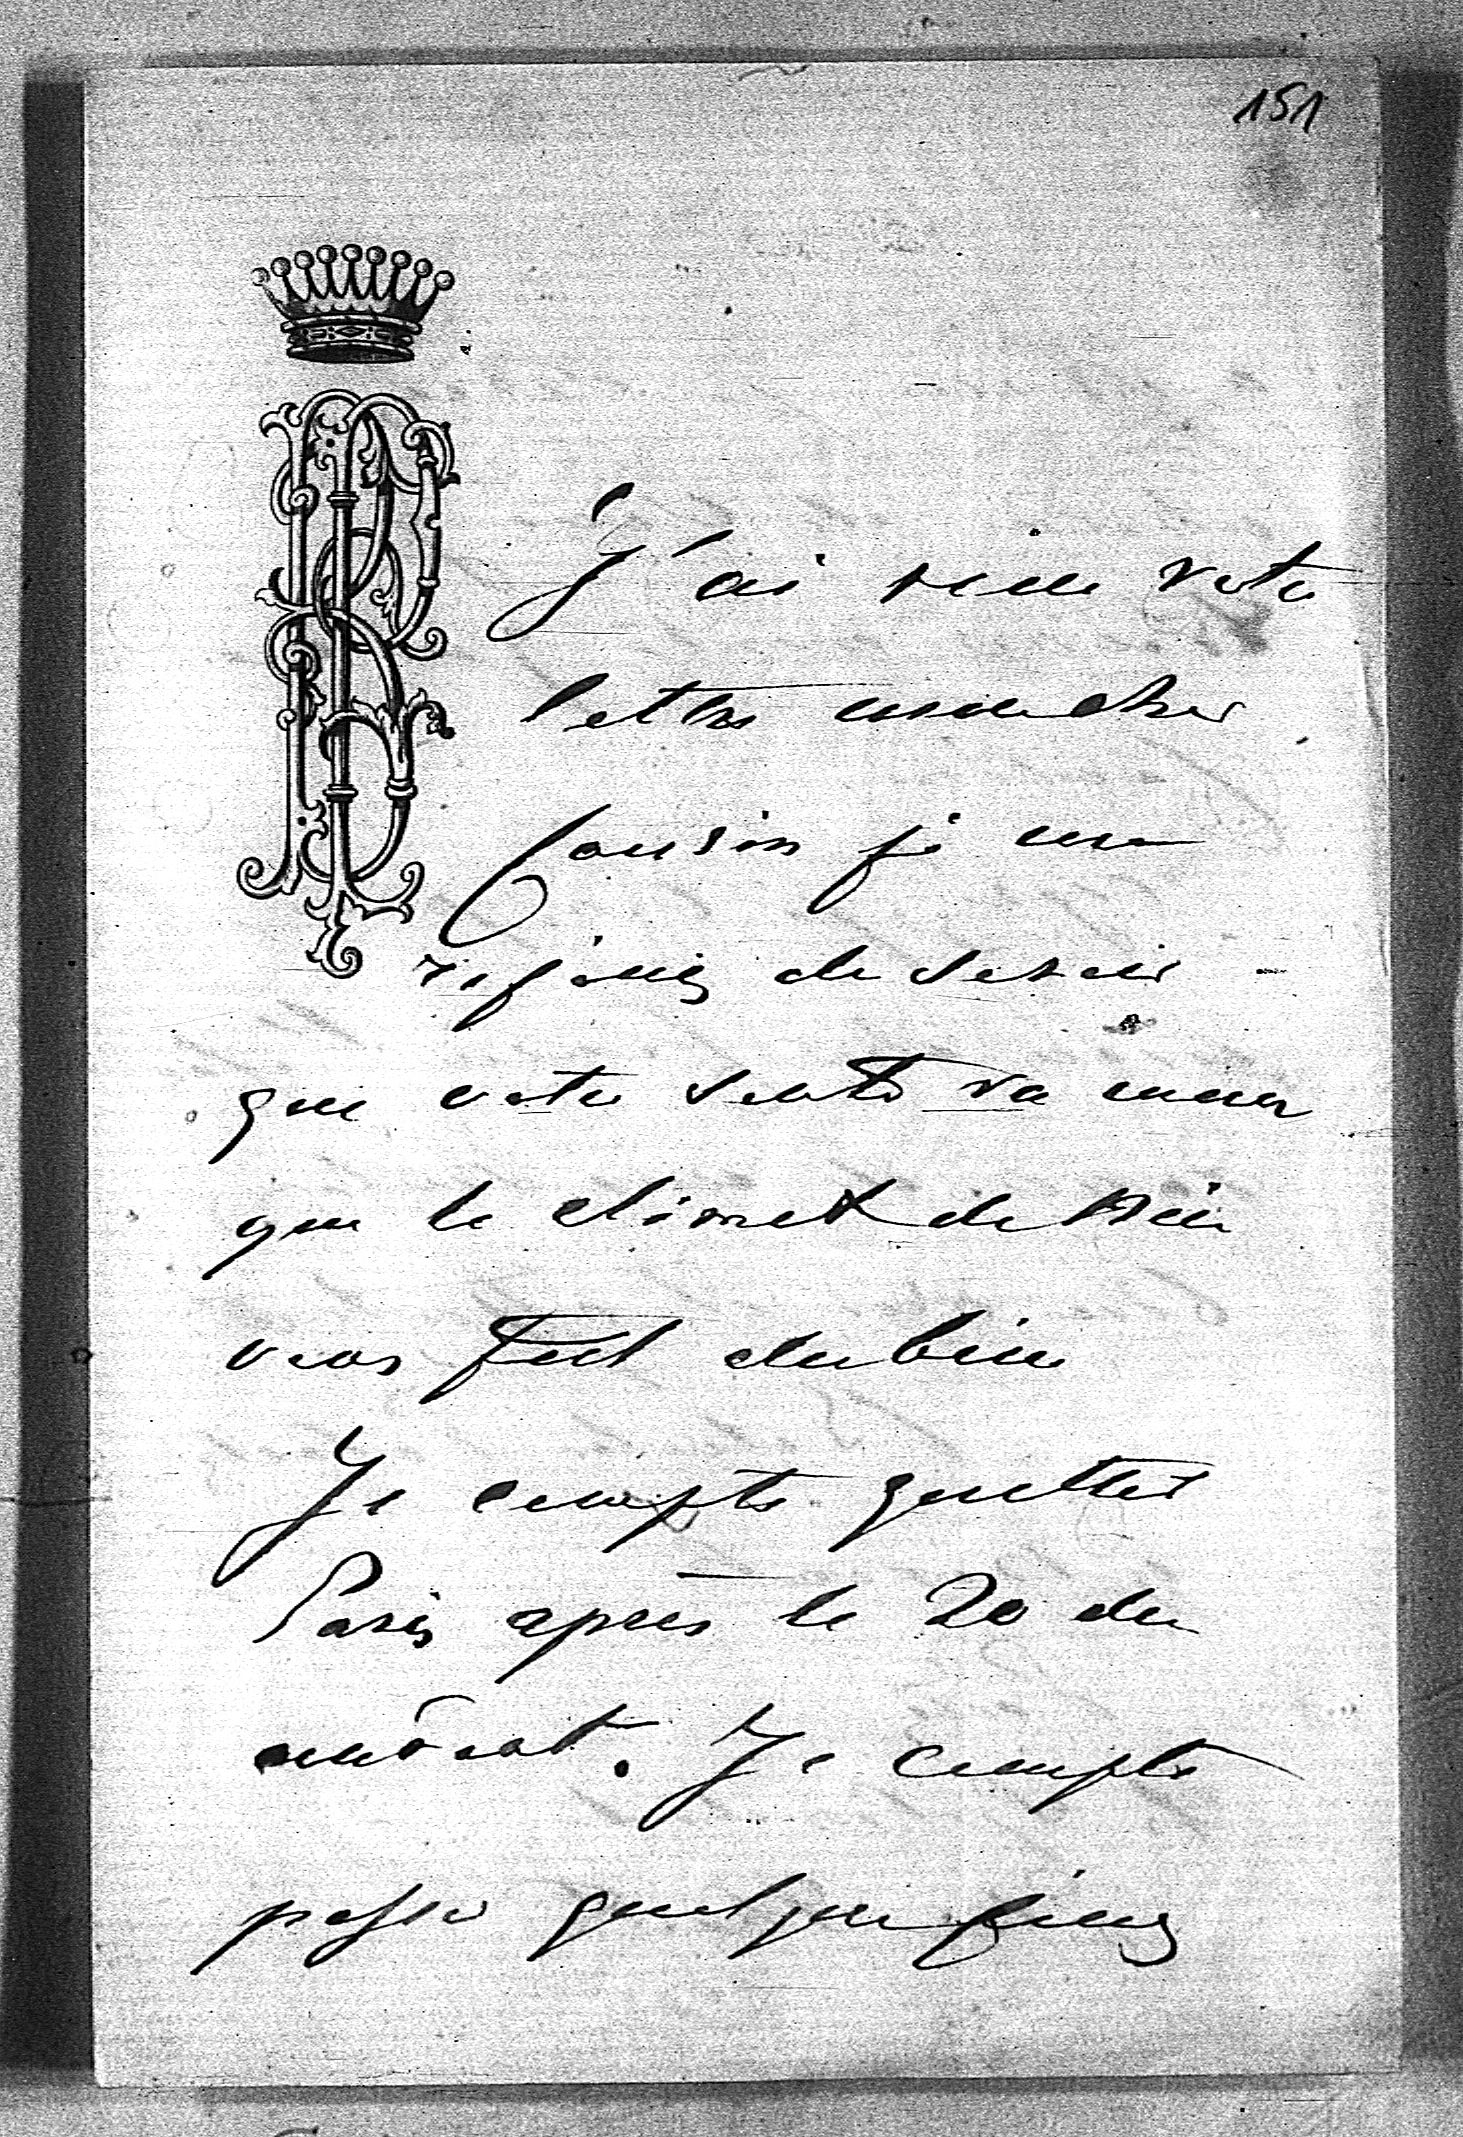 151
J'ai reçu votre
lettre mon cher
Cousin je me
réjouis de savoir
que votre santé va mieux
que le climat de Nice
vous fait du bien
Je compte quitter
Paris après le 20 du
courant. Je compte
passer quelques jours